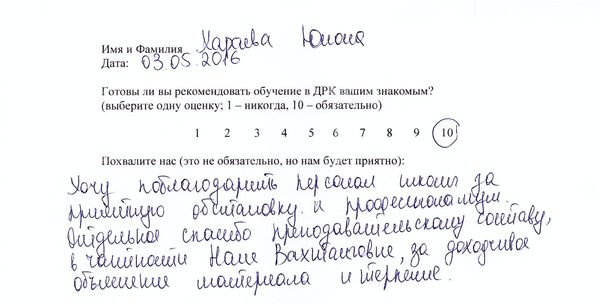 Имя и Фамилия Хараева Юлиана
Дата: 03.05.2016
Готовы ли вы рекомендовать обучение в ДРК вашим знакомым?
(выберите одну оценку; 1 – никогда, 10 – обязательно)
1 2 3 4 5 6 7 8 9 10
Похвалите нас (это не обязательно, но нам будет приятно):
Хочу поблагодарить персонал школы за
приятную обстановку и профессионализм.
Отдельное спасибо преподавательскому составу,
в частности Вахитанговне, за доходчивое
объяснение материала и терпение.